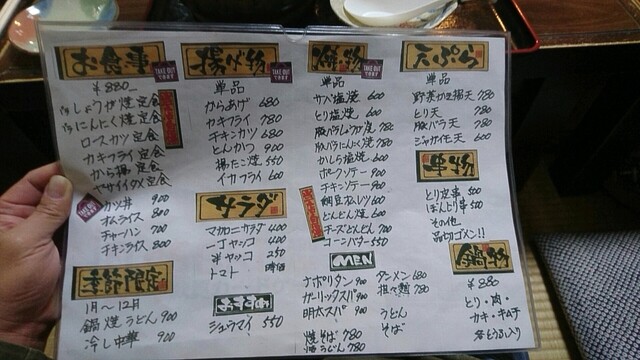 お食事
TAKE OUT
¥880
しょうが焼定食
にんにく焼定食
ロースカツ定食
カキフライ定食
から揚定食
ヤサイイタメ定食
カツ丼 900
オムライス 800
チャーハン 700
チキンライス 800
季節限定
1月〜12月
鍋焼うどん 900
冷し中華 900
揚げ物
TAKE OUT
単品
からあげ 680
カキフライ 780
チキンカツ 680
とんかつ 900
揚たこ焼 550
イカフライ 600
サラダ
マカロニサラダ 400
ゴーヤ 400
冷ヤッコ 250
トマト 時価
シュウマイ 550
焼物
単品
サバ塩焼 600
とり塩焼 600
豚バラしょうが焼 780
豚バラにんにく焼 780
かしら塩焼 600
ポークソテー 900
チキンソテー 900
とんどん焼 600
チーズとんどん 700
コーンバター 550
MEN
ナポリタン 900
ガーリックスパ 900
明太スパ 900
焼そば 780
焼うどん 780
タンメン 680
担々麺 780
うどん
そば
天ぷら
単品
野菜かき揚天 780
とり天 780
豚バラ天 780
ジャガイモ天 600
串物
とり皮串 500
ぼんじり串 500
その他
品切ゴメン!!
鍋物
¥880
とり・肉・
カキ・キムチ
各とうふ入り